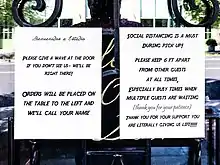 PLEASE GIVE A WAVE AT THE DOOR
IF YOU DON'T SEE US - WE'LL BE
RIGHT THERE!
ORDERS WILL BE PLACED ON
THE TABLE TO THE LEFT AND
WE'LL CALL YOUR NAME
SOCIAL DISTANCING IS A MUST
DURING PICK UP!
PLEASE KEEP 6 FT APART
FROM OTHER GUESTS
AT ALL TIMES,
ESPECIALLY BUSY TIMES WHEN
MULTIPLE GUESTS ARE WAITING
(thank you for your patience)
THANK YOU FOR YOUR SUPPORT! YOU
ARE LITERALLY GIVING US